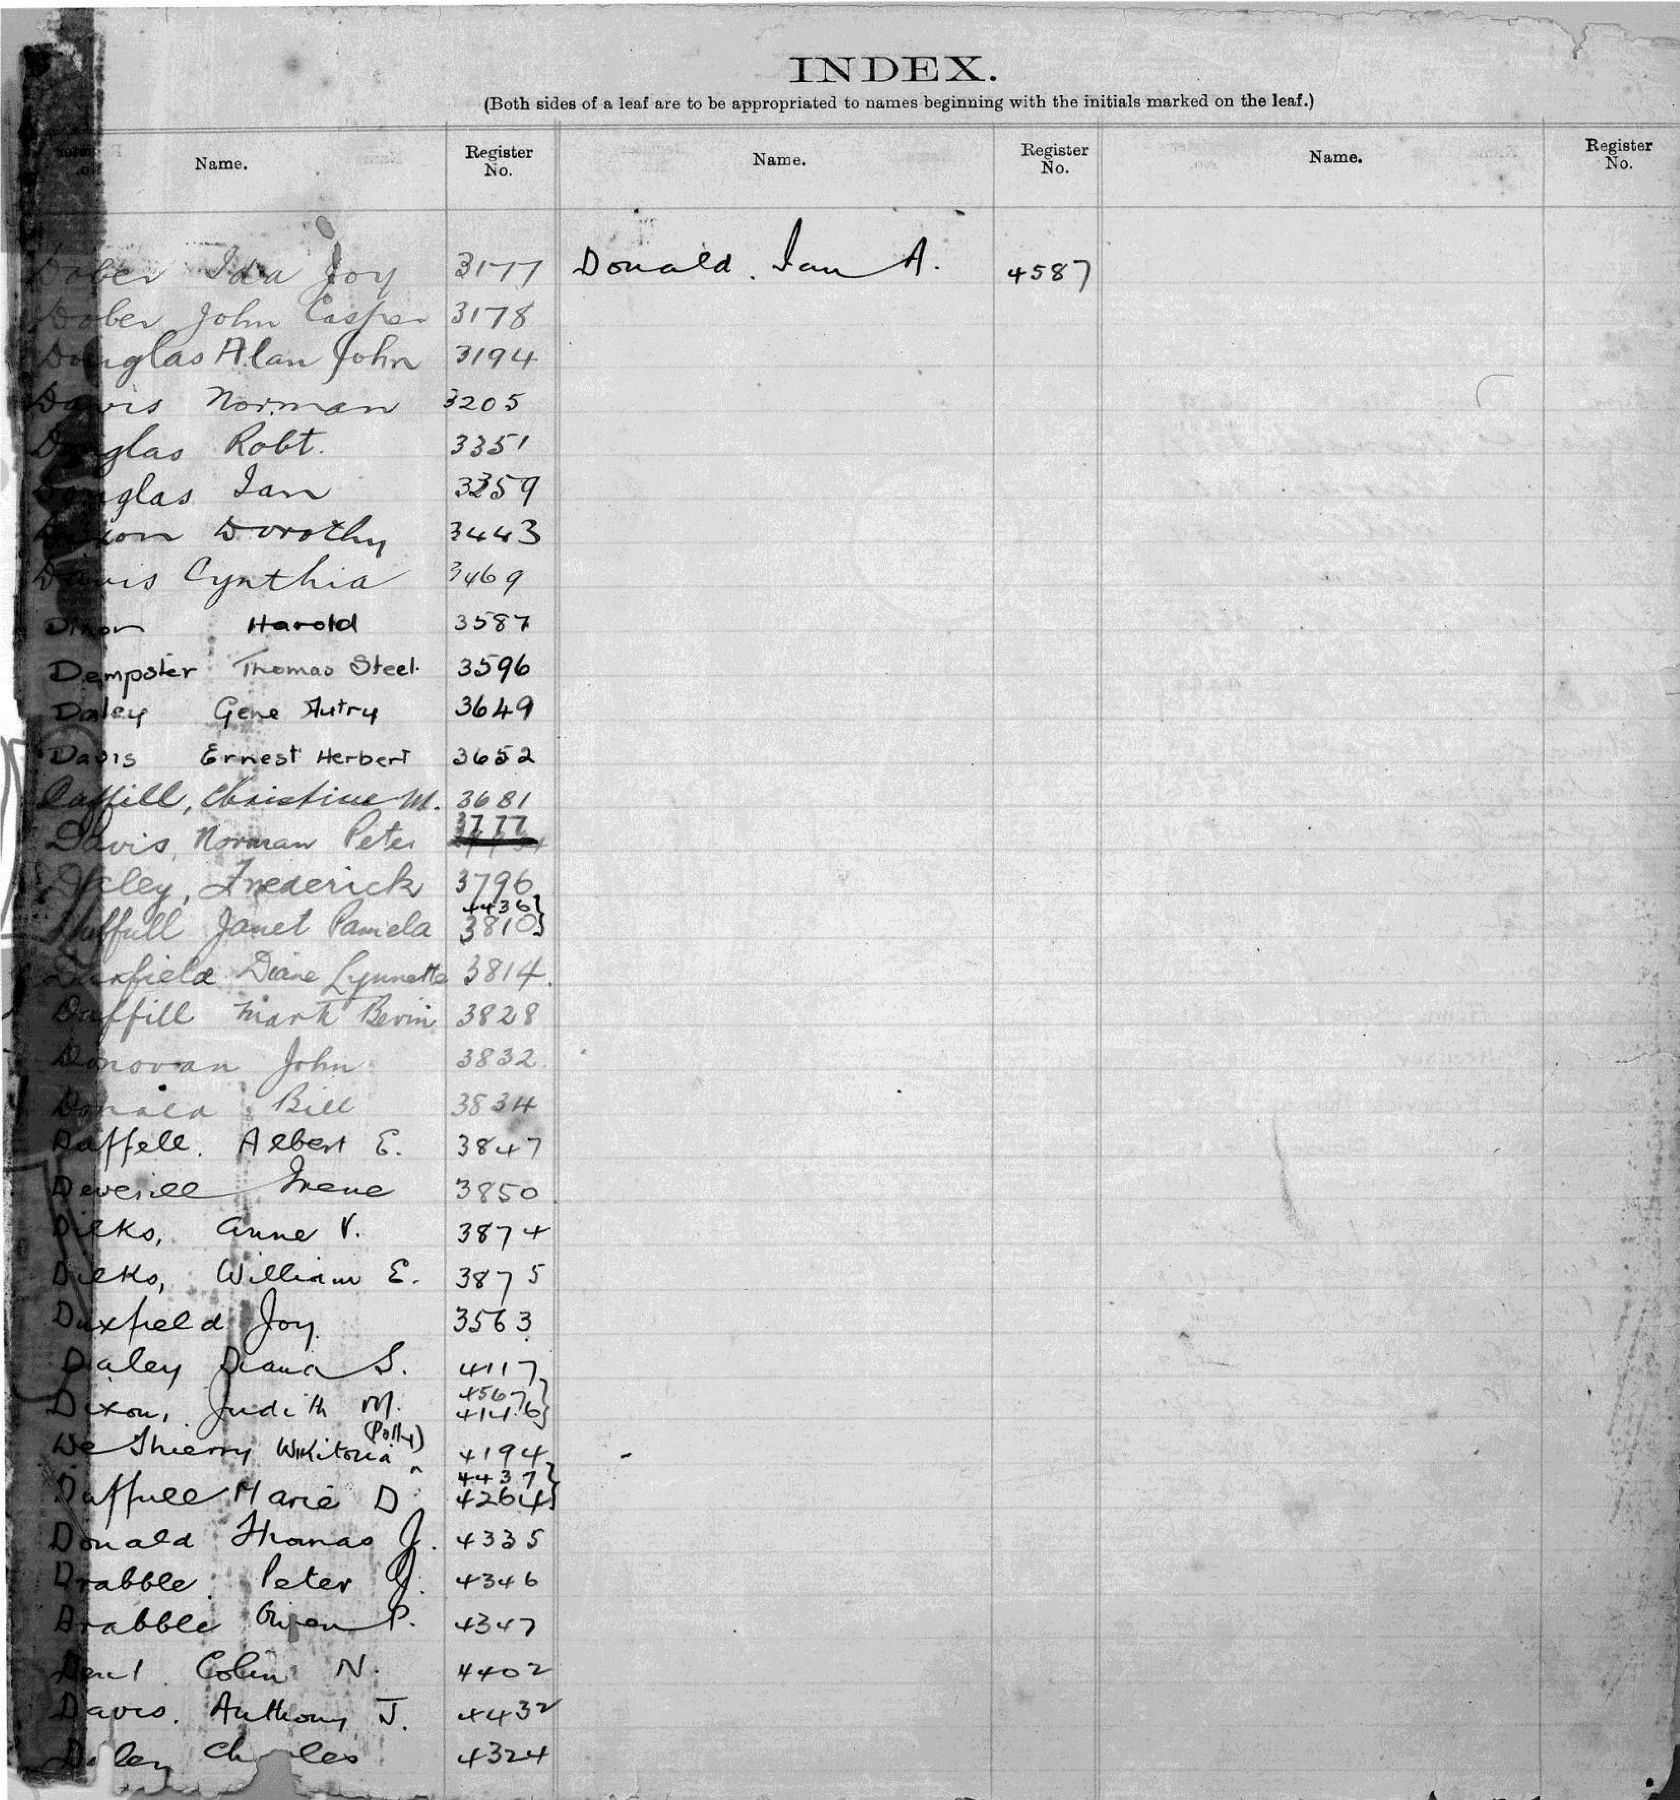 INDEX.
(Both sides of a leaf are to be appropriated to names beginning with the initials marked on the leaf.)
Name. Register No. Name. Register No. Name. Register No.
Dober Ida Joy 3177 Donald. Ian A. 4587
Dober John Casper 3178
Douglas Alan John 3194
Davis Norman 3205
Douglas Robt. 3351
Douglas Ian 3359
Dixon Dorothy 3443
Davis Cynthia 3469
Dixon Harold 3587
Dempster Thomas Steel. 3596
Daley Gene Autry 3649
Davis Ernest Herbert 3652
Daffill, Christine M. 3681
Davis, Norman Peter 3777
Daley, Frederick 3796
4436}
Duffull Janet Pamela 3810}
Duxfield Diane Lynnette 3814.
Daffill Mark Bevin 3828
Donovan John 3832
Donald Bill 3834
Daffell. Albert E. 3847
Deverill Irene 3850
Dilks, Anne V. 3874
Dilks, William E. 3875
Duxfield Joy. 3563
Daley Diana S. 4117
4567}
Dixon, Judith M. 4146}
(Polly)
De Thierry Wikitoria ^ 4194
4437}
Duffull Marie D. 4264}
Donald Thomas J. 4335
Drabble. Peter J. 4346
Drabble Owen P. 4347
Dent Colin N. 4402
Davis. Anthony J. 4432
Daley Charles 4324